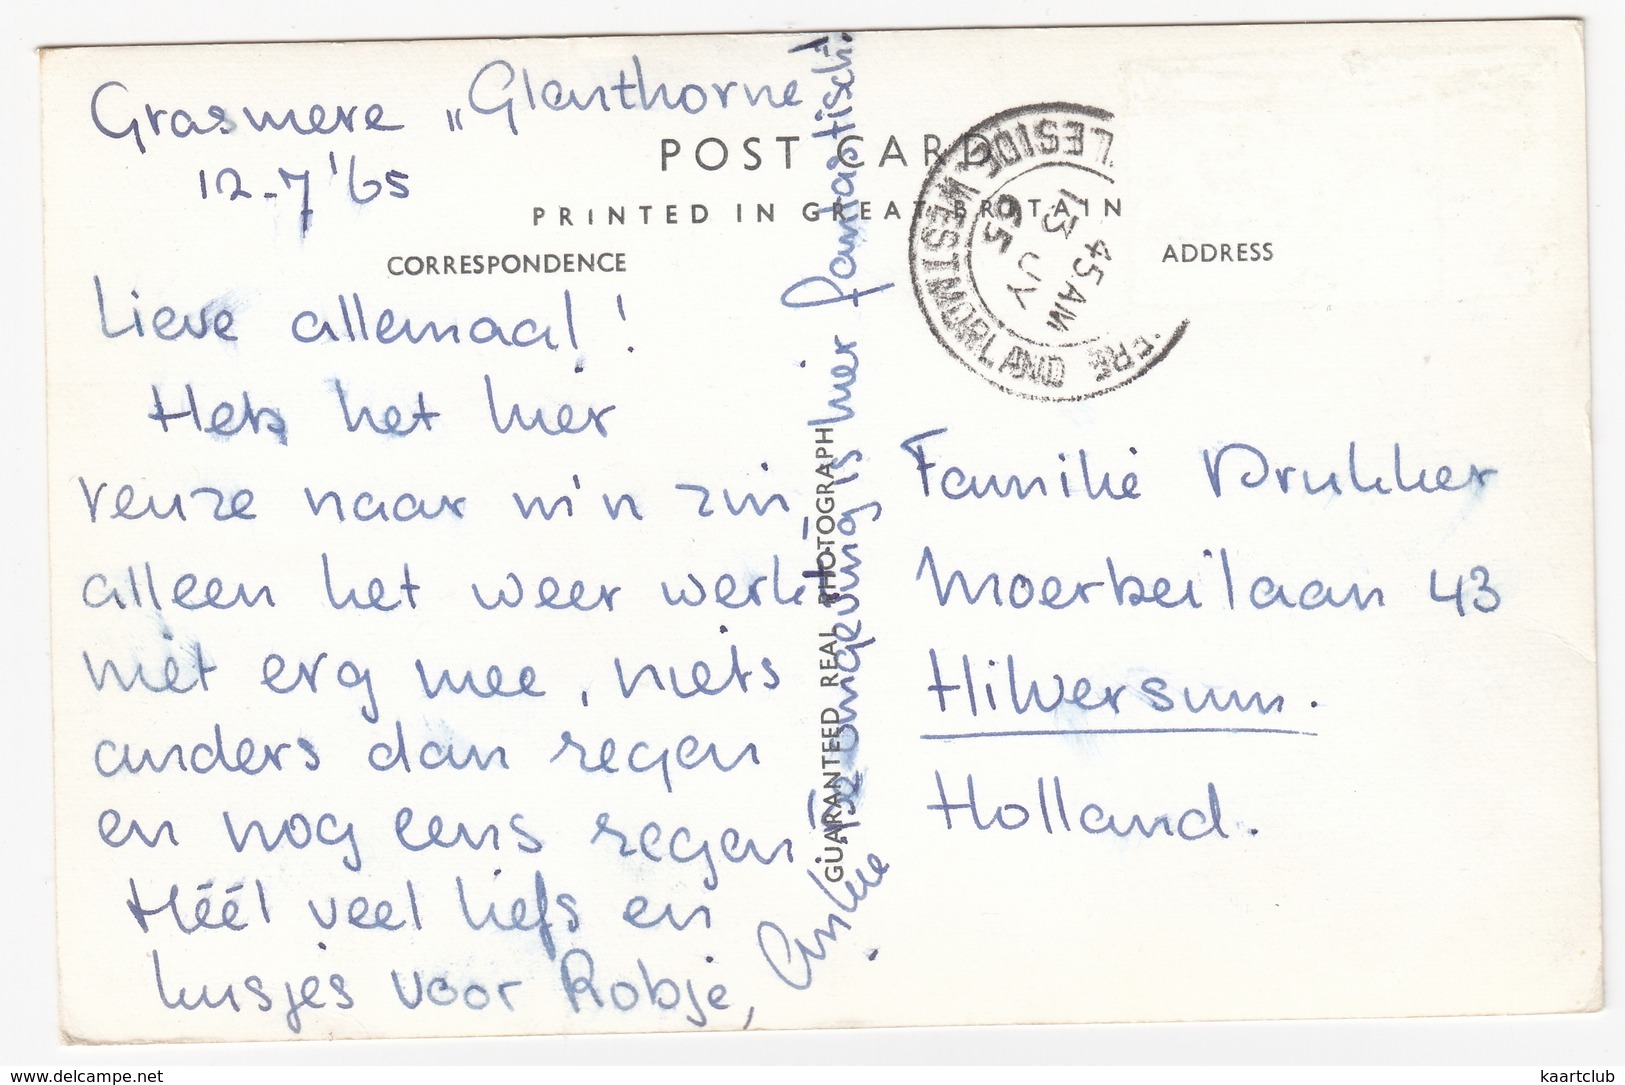 Grasmere „Glenthorne"
12-7'65
POST CARD
PRINTED IN GREAT BRITAIN
CORRESPONDENCE
ADDRESS
Lieve allemaal!
Heb het hier
reuze naar m'n zin
alleen het weer werkt
niet erg mee, niets
anders dan regen
en nog eens regen
Héél veel liefs en
kusjes voor Robje,
Anske.
De omgeving is hier fantastisch!
GUARANTEED REAL PHOTOGRAPH
LESIDE, WESTMORLAND ERE
45 AM
13 JY
65
Familie Drukker
Moerbeilaan 43
Hilversum.
Holland.
www.delcampe.net
kaartclub